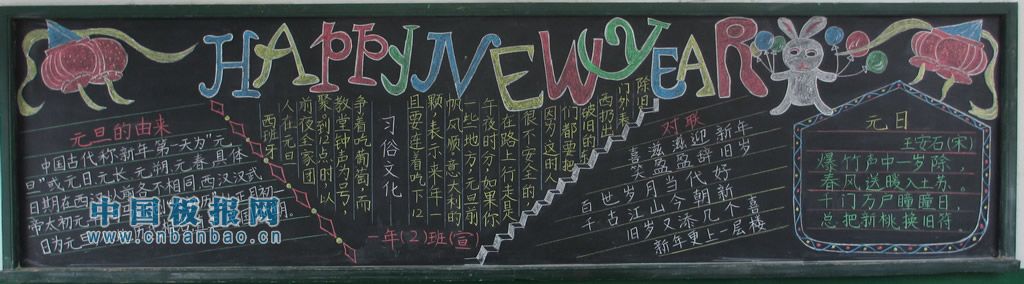 HAPPY NEW YEAR
元旦的由来
中国古代称新年第一天为“元
旦”或元日元长、元朔、元春具体
日期在西汉以前各不相同西汉汉武
帝太初元
日为元
中国板报网
www.cnbanbao.cn
西班牙
人在元旦
前夜全家团
聚。到12点时,以
教堂钟声为号,
争着吃葡萄。而
且要连着吃下12
颗,表示来年一
帆风顺,意大利的
一些地方,元旦前
午夜时分,如果你
走在路上行走是
很不安全的
因为这时的人
们都要把
破旧的
西扔出
门外,表
除旧
习俗文化
一年(2)班(宣)
对联
喜滋滋迎新年
笑盈盈辞旧岁
百世岁月当代好
千古江山今朝新
旧岁又添几个喜
新年更上一层楼
元日
王安石(宋)
爆竹声中一岁除,
春风送暖入土苏。
千门万户瞳瞳日,
总把新桃换旧符